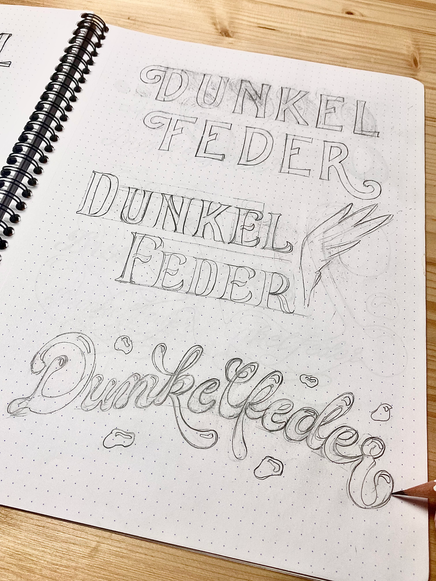 DUNKEL
FEDER
DUNKEL
FEDER
Dunkelfeder